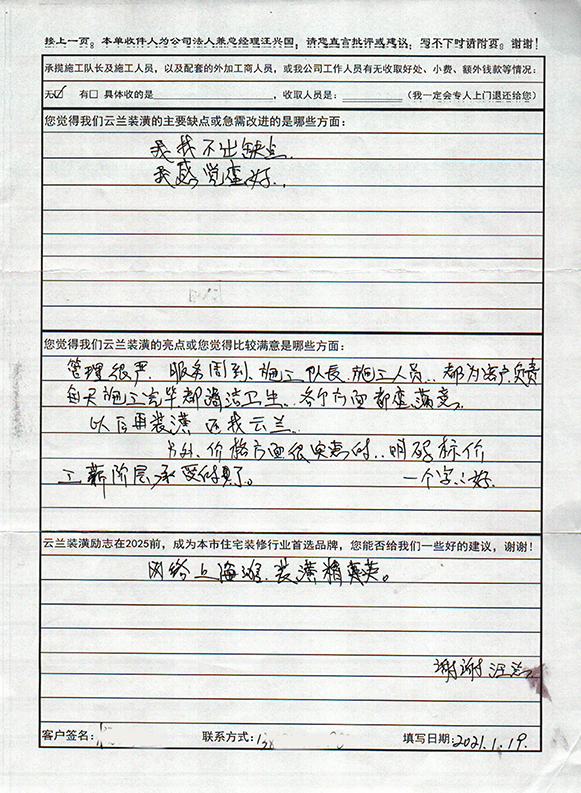 接上一页。本单收件人为公司法人兼总经理汪兴国，请您直言批评或建议；写不下时请附页。谢谢！
承揽施工队长及施工人员，以及配套的外加工商人员，或我公司工作人员有无收取好处、小费、额外钱款等情况：
无☑ 有□ 具体收的是 ，收取人员是： （我一定会专人上门退还给您）
您觉得我们云兰装潢的主要缺点或急需改进的是哪些方面：
我找不出缺点.
我感觉蛮好..
您觉得我们云兰装潢的亮点或您觉得比较满意是哪些方面：
管理很严. 服务周到、施工队长. 施工人员... 都为客户负责
每天施工完毕都清洁卫生... 各方面都蛮满意.
以后再装潢 还找云兰...
另外、价格方面很实惠的... 明码标价
工薪阶层承受得具了。 一个字:好.
云兰装潢励志在2025前，成为本市住宅装修行业首选品牌，您能否给我们一些好的建议，谢谢！
网络上海滩. 装潢精英。
谢谢汪总
客户签名： 联系方式： 填写日期：2021.1.19.